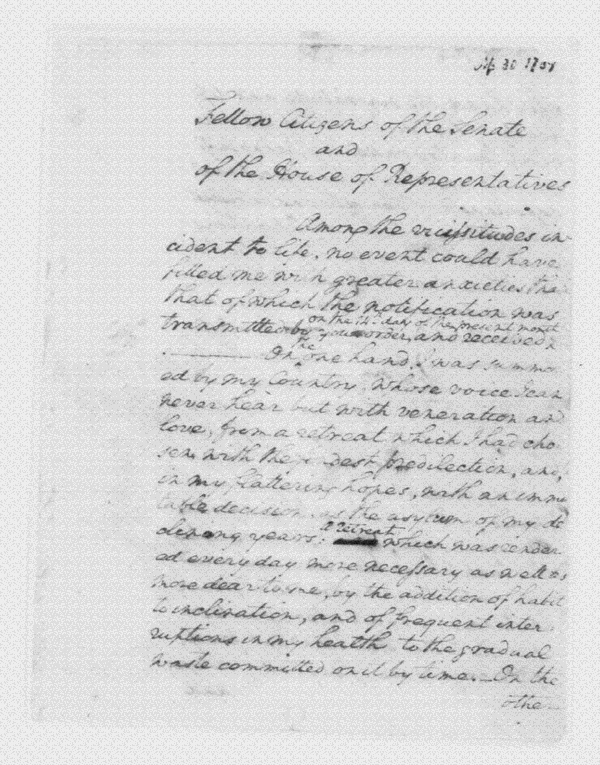 Ap 30 1789
Fellow Citizens of the Senate
and
of the House of Representatives
Among the vicissitudes in-
cident to life, no event could have
filled me with greater anxieties than
that of which the notification was
on the 14th day of the present month
transmitted by your order, and received
the
On one hand, I was summon
ed by my Country, whose voice I can
never hear but with veneration and
love, from a retreat which I had cho
sen with the fondest predilection, and,
in my flattering hopes, with an immu
table decision, as the asylum of my de
a retreat
clining years: which was render
ed every day more necessary as well as
more dear to me, by the addition of habit
to inclination, and of frequent inter
ruptions in my health to the gradual
waste committed on it by time. On the
other